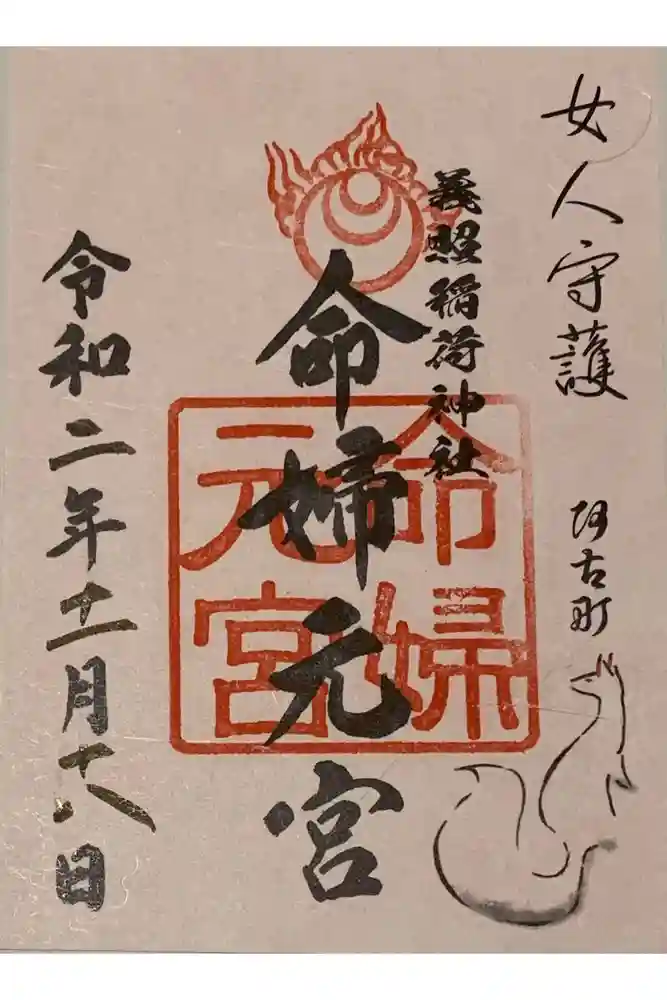 女人守護 阿古町
義照稲荷神社
命婦元宮
命婦元宮
令和二年十一月十八日